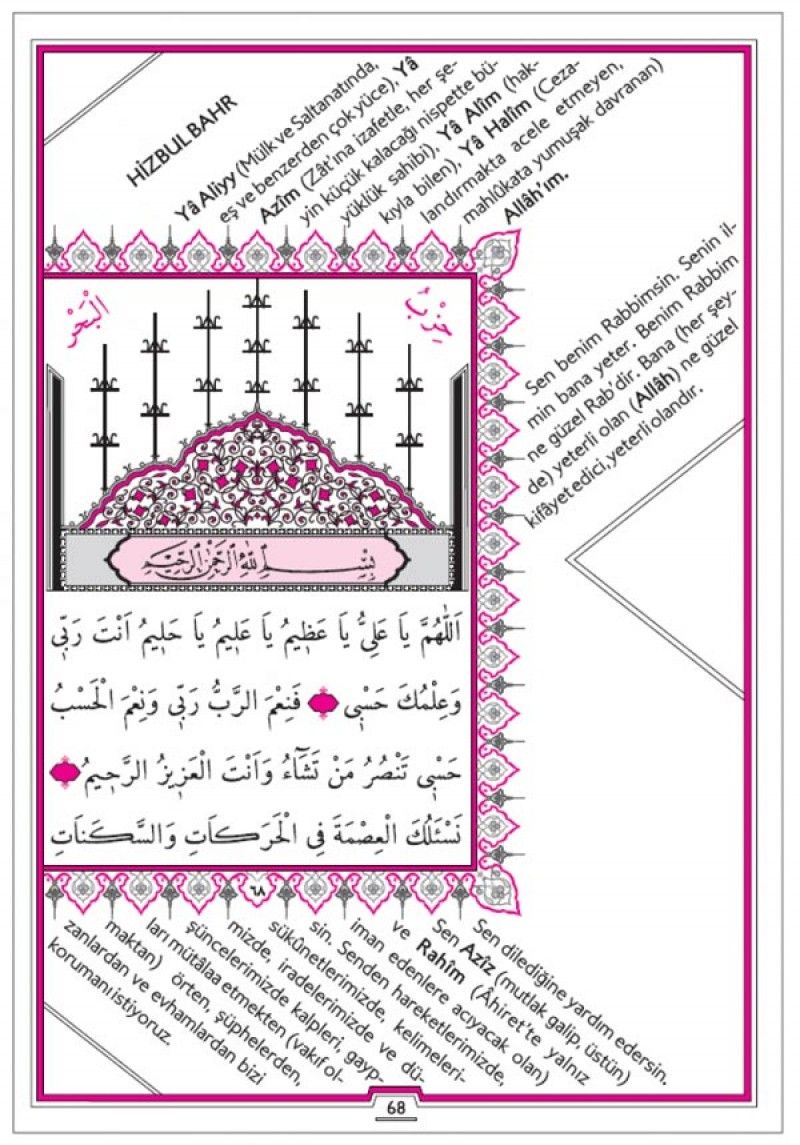 HİZBUL BAHR
Yâ Aliyy (Mülk ve Saltanatında,
eş ve benzerden çok yüce), Yâ
Azîm (Zât'ına izafetle, her şe-
yin küçük kalacağı nispette bü-
yüklük sahibi), Yâ Alîm (hak-
kıyla bilen), Yâ Halîm (Ceza-
landırmakta acele etmeyen,
mahlûkata yumuşak davranan)
Allâh'ım.
Sen benim Rabbimsin. Senin il-
min bana yeter. Benim Rabbim
ne güzel Rab'dir. Bana (her şey-
de) yeterli olan (Allâh) ne güzel
kifâyet edici, yeterli olandır.
حِزْبُ الْبَحْرِ
بِسْمِ اللّٰهِ الرَّحْمٰنِ الرَّحِيمِ
اَللّٰهُمَّ يَا عَلِيُّ يَا عَظِيمُ يَا عَلِيمُ يَا حَلِيمُ اَنْتَ رَبِّي
وَعِلْمُكَ حَسْبِي فَنِعْمَ الرَّبُّ رَبِّي وَنِعْمَ الْحَسْبُ
حَسْبِي تَنْصُرُ مَنْ تَشَٓاءُ وَاَنْتَ الْعَزِيزُ الرَّحِيمُ
نَسْئَلُكَ الْعِصْمَةَ فِي الْحَرَكَاتِ وَالسَّكَنَاتِ
٦٨
Sen dilediğine yardım edersin.
Sen Azîz (mutlak galip, üstün)
ve Rahîm (Âhiret'te yalnız
iman edenlere acıyacak olan)
sin. Senden hareketlerimizde,
sükûnetlerimizde, kelimeleri-
mizde, iradelerimizde ve dü-
şüncelerimizde kalpleri, gayp-
ları mütâlaa etmekten (vakıf ol-
maktan) örten, şüphelerden,
zanlardan ve evhamlardan bizi
korumanı istiyoruz.
68